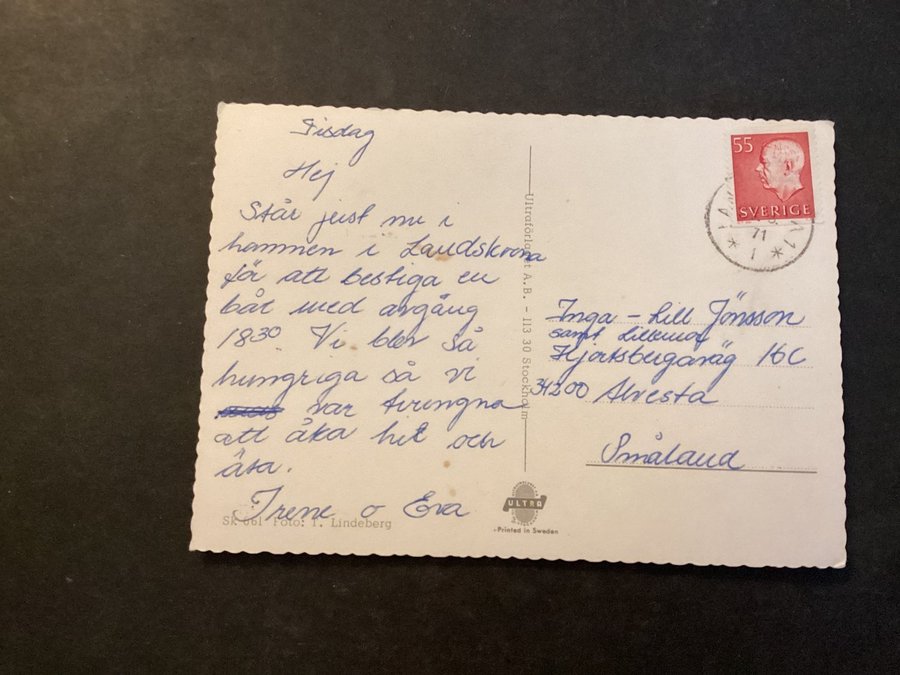 Tisdag
Hej
Står just nu i
hamnen i Landskrona
för att bestiga en
båt med avgång
1830 Vi blev så
hungriga så vi
var tvungna
att åka hit och
äta.
Irene o Eva
Sk 661 Foto: T. Lindeberg
Ultraförlaget A.B. - 113 30 Stockholm
ULTRA
Printed in Sweden
55
SVERIGE
71
1
Inga-Lill Jönsson
samt Lillemor
Hjortsbergaväg 16C
34200 Alvesta
Småland